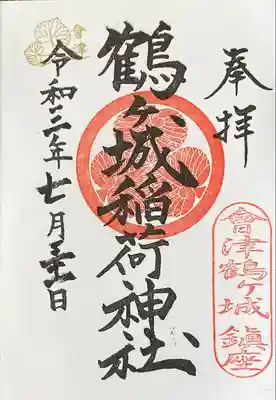 奉拝
會津鶴ヶ城 鎮座
鶴ヶ城稲荷神社
會津
令和三年七月 日